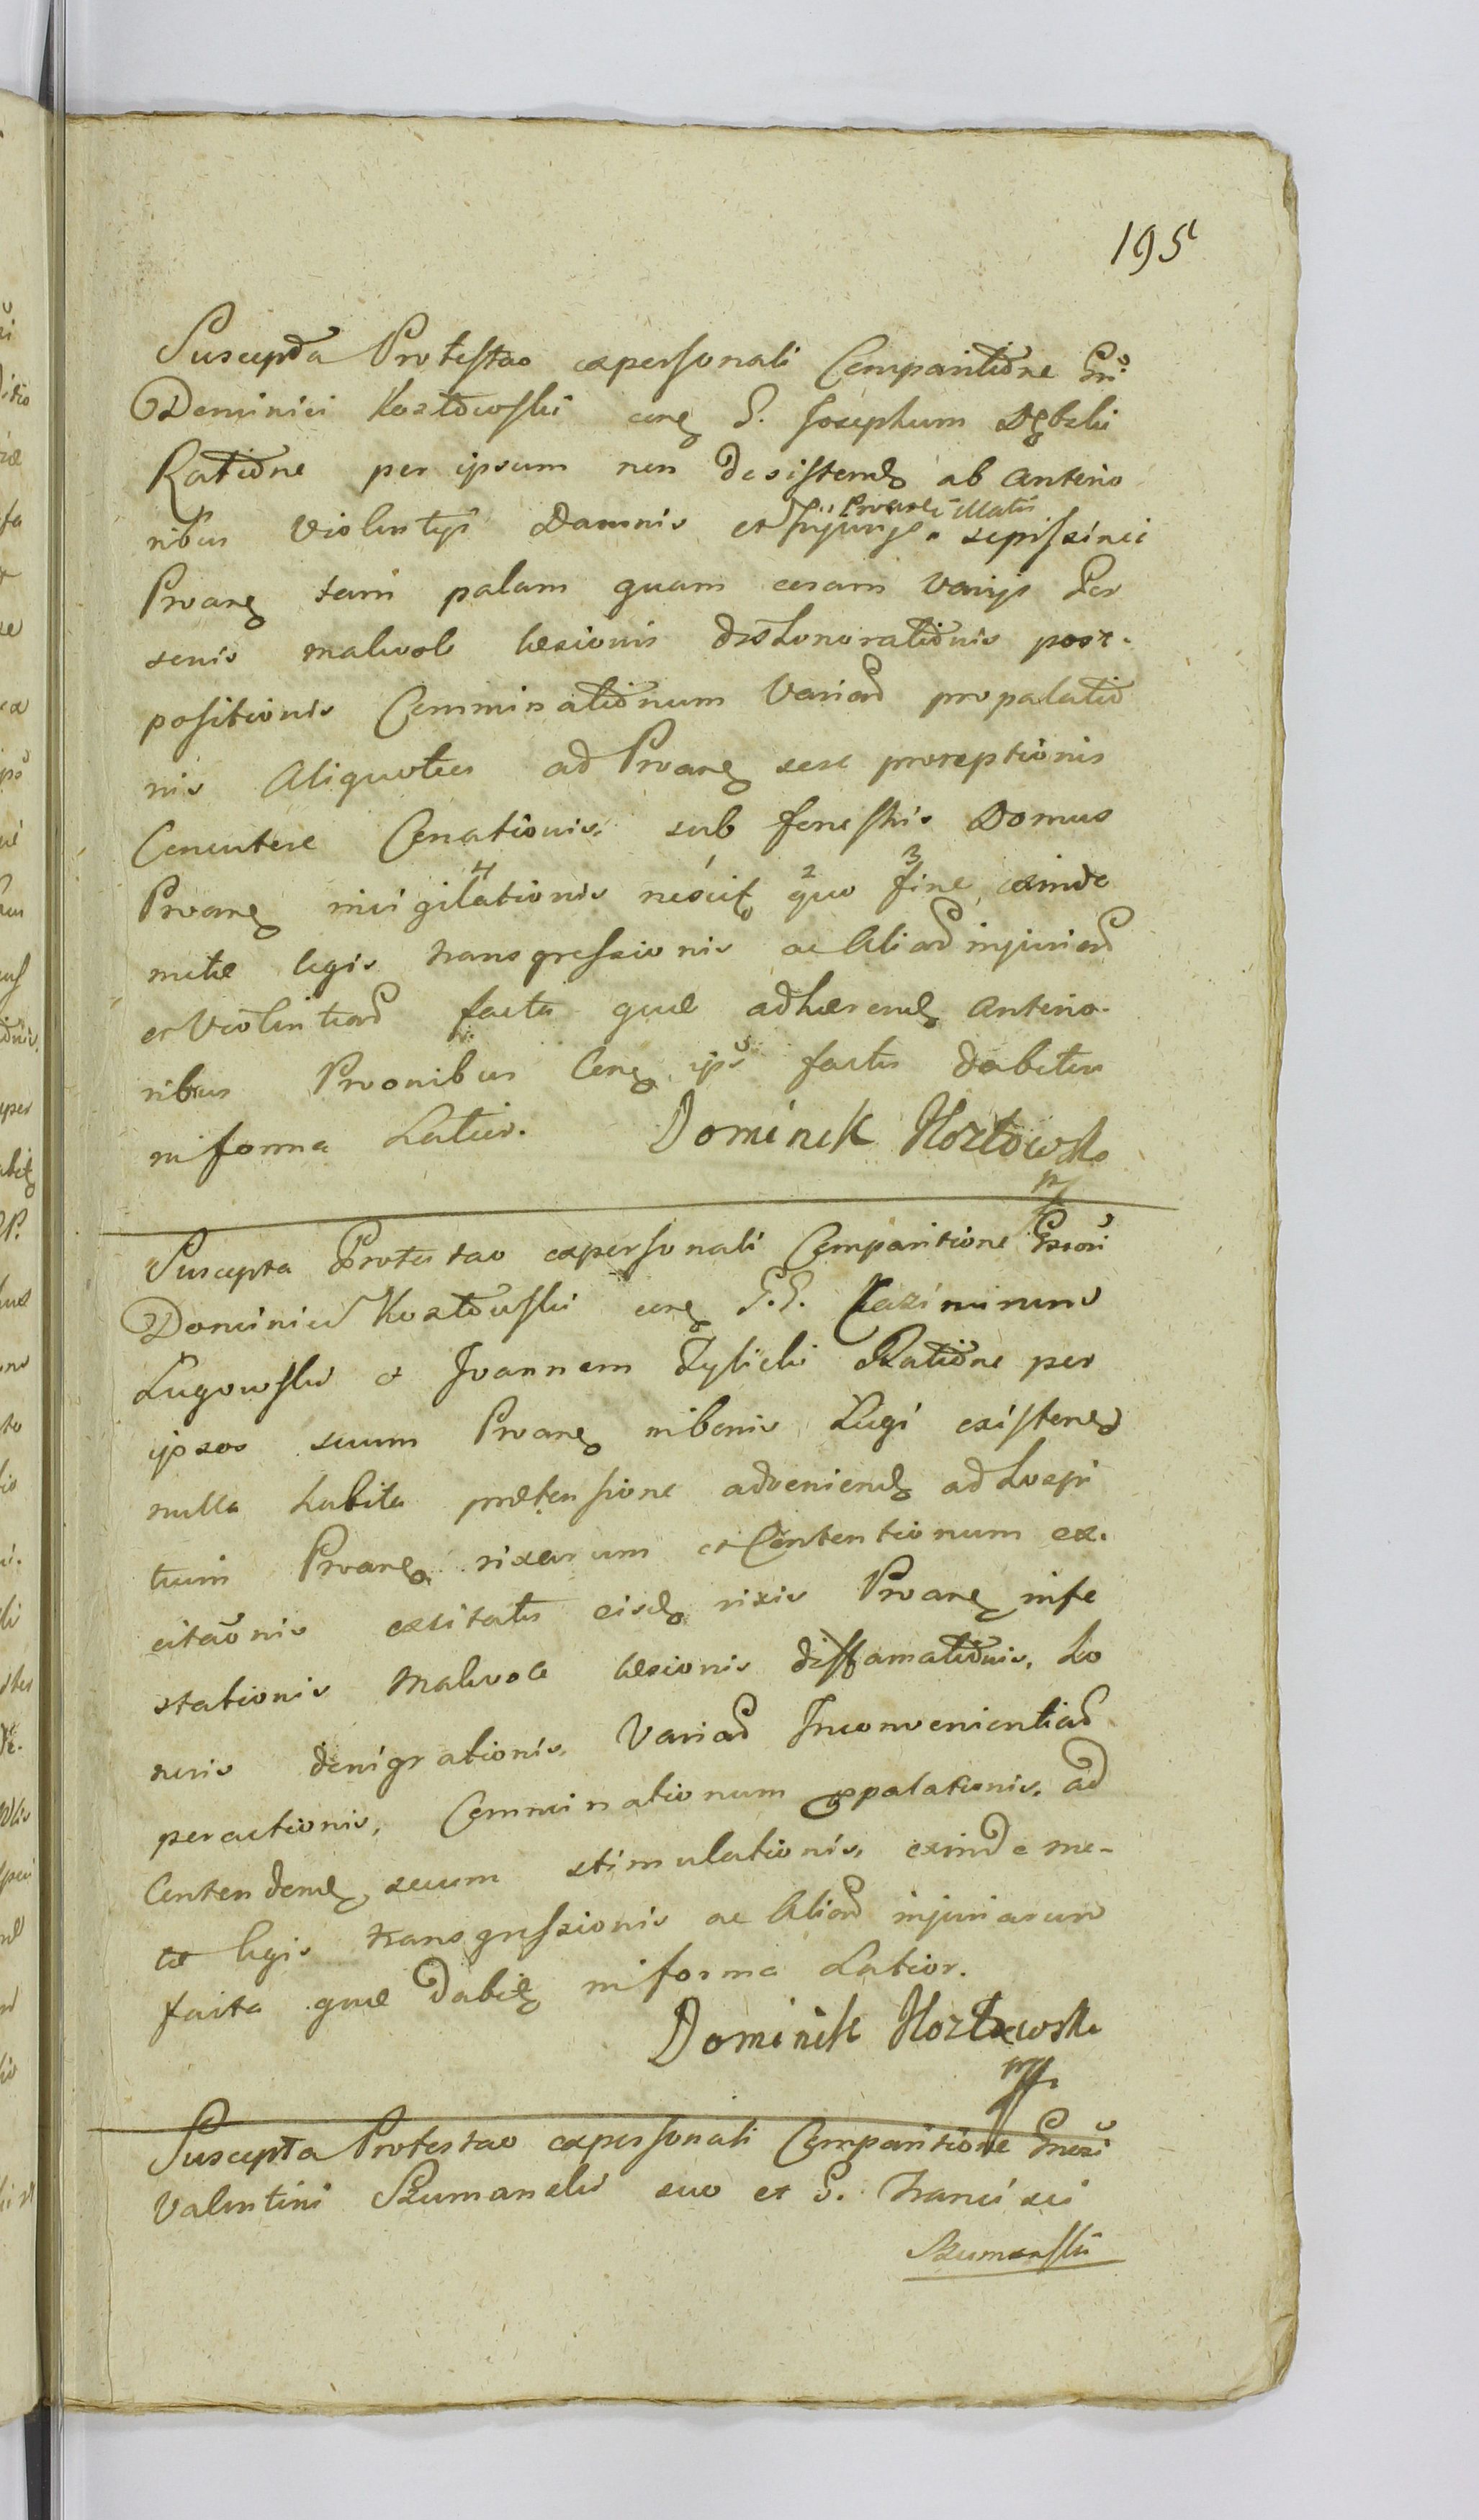 195
Suscepta Protestao ex personali Comparitione Gnī
Dominici Kozłowski con͠ G. Josephum Dębski
Ratione per ipsum non desisten͠ ab anterio
ribus violentys Damnis et Injurys Proanti illatis sepissime
Proan͠ tam palam quam coram varys Per
sonis malevole lesionis dishonorationis post-
positionis Comminationum Variar͠ propalatio
nis Aliquoties ad Proan͠ sese proreptionis
Conationis sub fenestris Domus
Proan͠ invigilationis 4 nescit͠ 1 quo 2 fine 3 exinde
metæ legis transgressionis ac Aliar͠ injuriar͠
et Violentiar͠ facta quæ adhæren͠ anterio-
ribus Proonibus Con͠ ipm̄ factis dabitur
in forma Latior.
Dominik Kozłowski
mp
Suscepta Protestao ex personali Comparitione Gnosi
Dominici Kozłowski con͠ G.G. Kazimirum
Ługowski et Joannem Zylicki Ratione per
ipsos suum Proan͠ in bonis Ługi existen͠
nulla habita prætensione advenien͠ ad hospi
tium Proan͠ rixarum et Contentionum ex-
citaōnis excitatis eisd͠ rixis Proan͠ infe
stationis Malevole lesionis diffamationis, ho
noris denigrationis, Variar͠ Inconvenientiar͠
peractionis, Comminationum propalationis, ad
Contenden͠ secum stimulationis, exinde me-
tæ legis transgressionis ac Aliar͠ injuriarum
facta quæ dabit͠ in forma Latior.
Dominik Kozłowski
mp
Suscepta Protestao ex personali Comparitione Gnosi
Valentini Szumanski suo et G. Francisci
Szumanski